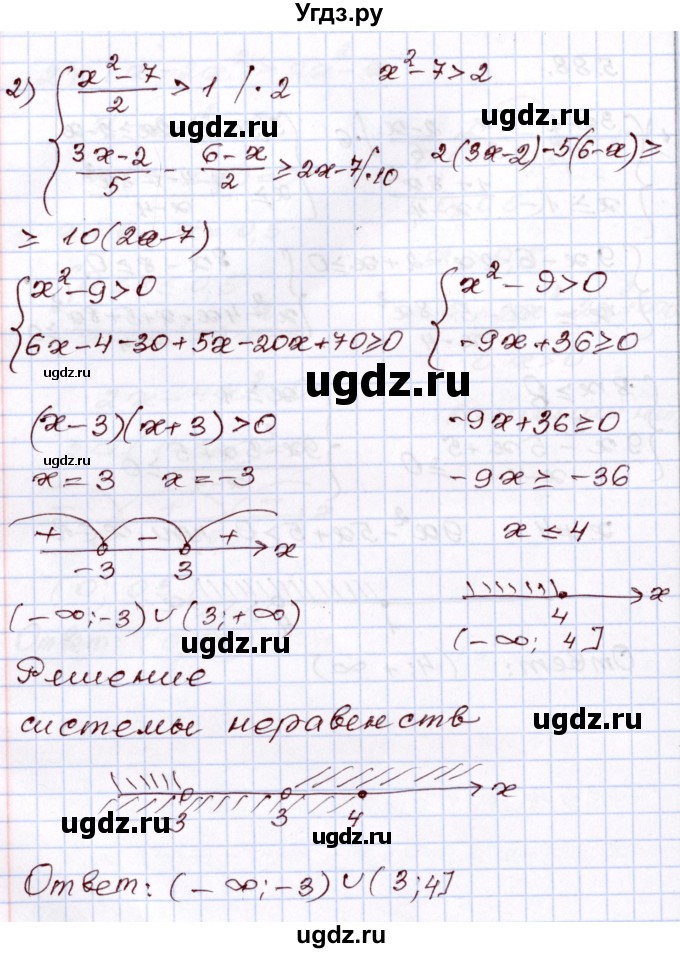 Угдз.ру
2) { (x² - 7)/2 > 1 /·2    x² - 7 > 2
(3x - 2)/5 - (6 - x)/2 ≥ 2x - 7 /·10    2(3x - 2) - 5(6 - x) ≥
ugdz.ru
≥ 10(2x - 7)
ugdz.ru
{ x² - 9 > 0    { x² - 9 > 0
6x - 4 - 30 + 5x - 20x + 70 ≥ 0    -9x + 36 ≥ 0
ugdz.ru ugdz.ru
(x - 3)(x + 3) > 0    -9x + 36 ≥ 0
ugdz.ru
x = 3    x = -3    -9x ≥ -36
+ - + x    x ≤ 4
-3 3    4 x
(-∞; -3) ∪ (3; +∞)    (-∞; 4]
ugdz.ru
Решение
системы неравенств
ugdz.ru
x
3 3 4
ugdz.ru ugdz.ru
Ответ: (-∞; -3) ∪ (3; 4]
ugdz.ru